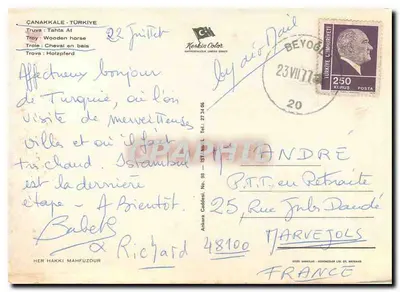 ÇANAKKALE - TÜRKİYE
Truva : Tahta At
Troy : Wooden horse
Troie : Cheval en bois
Trova : Holzpferd
22 Juillet
Keskin Color
by air Mail
BEYOĞ
23 VII 77
20
TÜRKİYE CUMHURİYETİ
250
KURUŞ POSTA
Affectueux bonjour
de Turquie, où l'on
visite de merveilleuses
villes et où il fait
très chaud. Istambul
est la dernière
étape - A Bientôt.
Babeth
& Richard
HER HAKKI MAHFUZDUR
Ankara Caddesi, No. 98 - İST. Tel : 27 24 06
M. ANDRE
P.T.T. en Retraite
25, Rue Jules Daudé
48100 MARVEJOLS
FRANCE